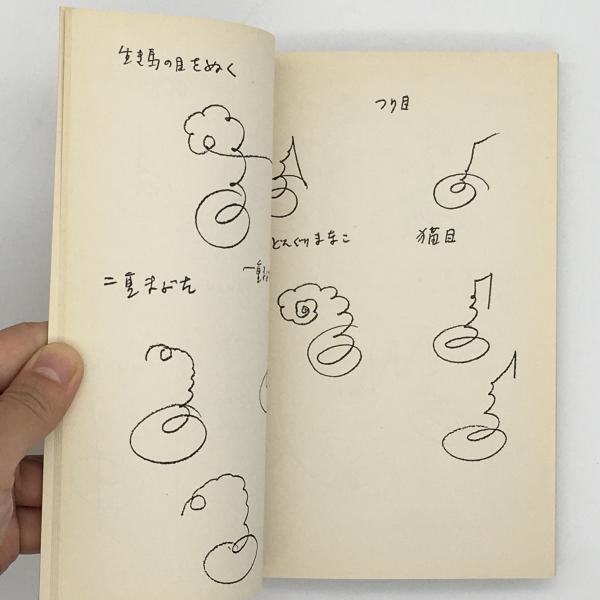 生き馬の目をぬく
二重まぶた
つり目
どんぐりまなこ
猫目